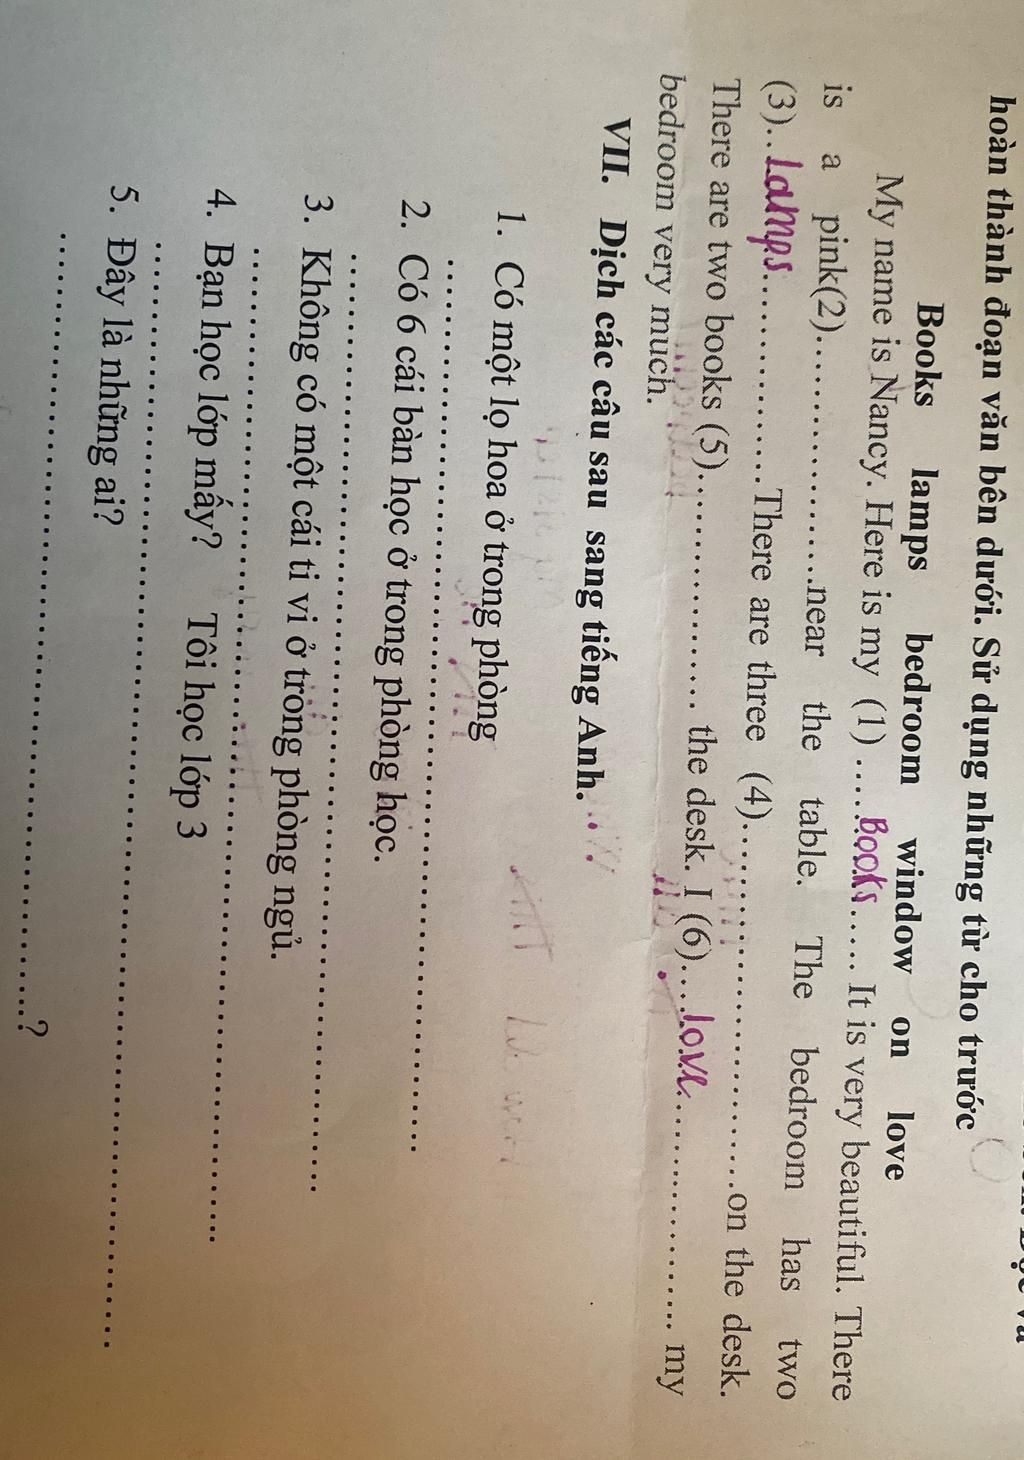 hoàn thành đoạn văn bên dưới. Sử dụng những từ cho trước
Books lamps bedroom window on love
My name is Nancy. Here is my (1) .....Books..... It is very beautiful. There
is a pink(2)........................near the table. The bedroom has two
(3)..Lamps.....................There are three (4)..............................on the desk.
There are two books (5)........................ the desk. I (6)....love..................... my
bedroom very much.
VII. Dịch các câu sau sang tiếng Anh.
1. Có một lọ hoa ở trong phòng
2. Có 6 cái bàn học ở trong phòng học.
3. Không có một cái ti vi ở trong phòng ngủ.
4. Bạn học lớp mấy? Tôi học lớp 3
5. Đây là những ai?
..............................................................?